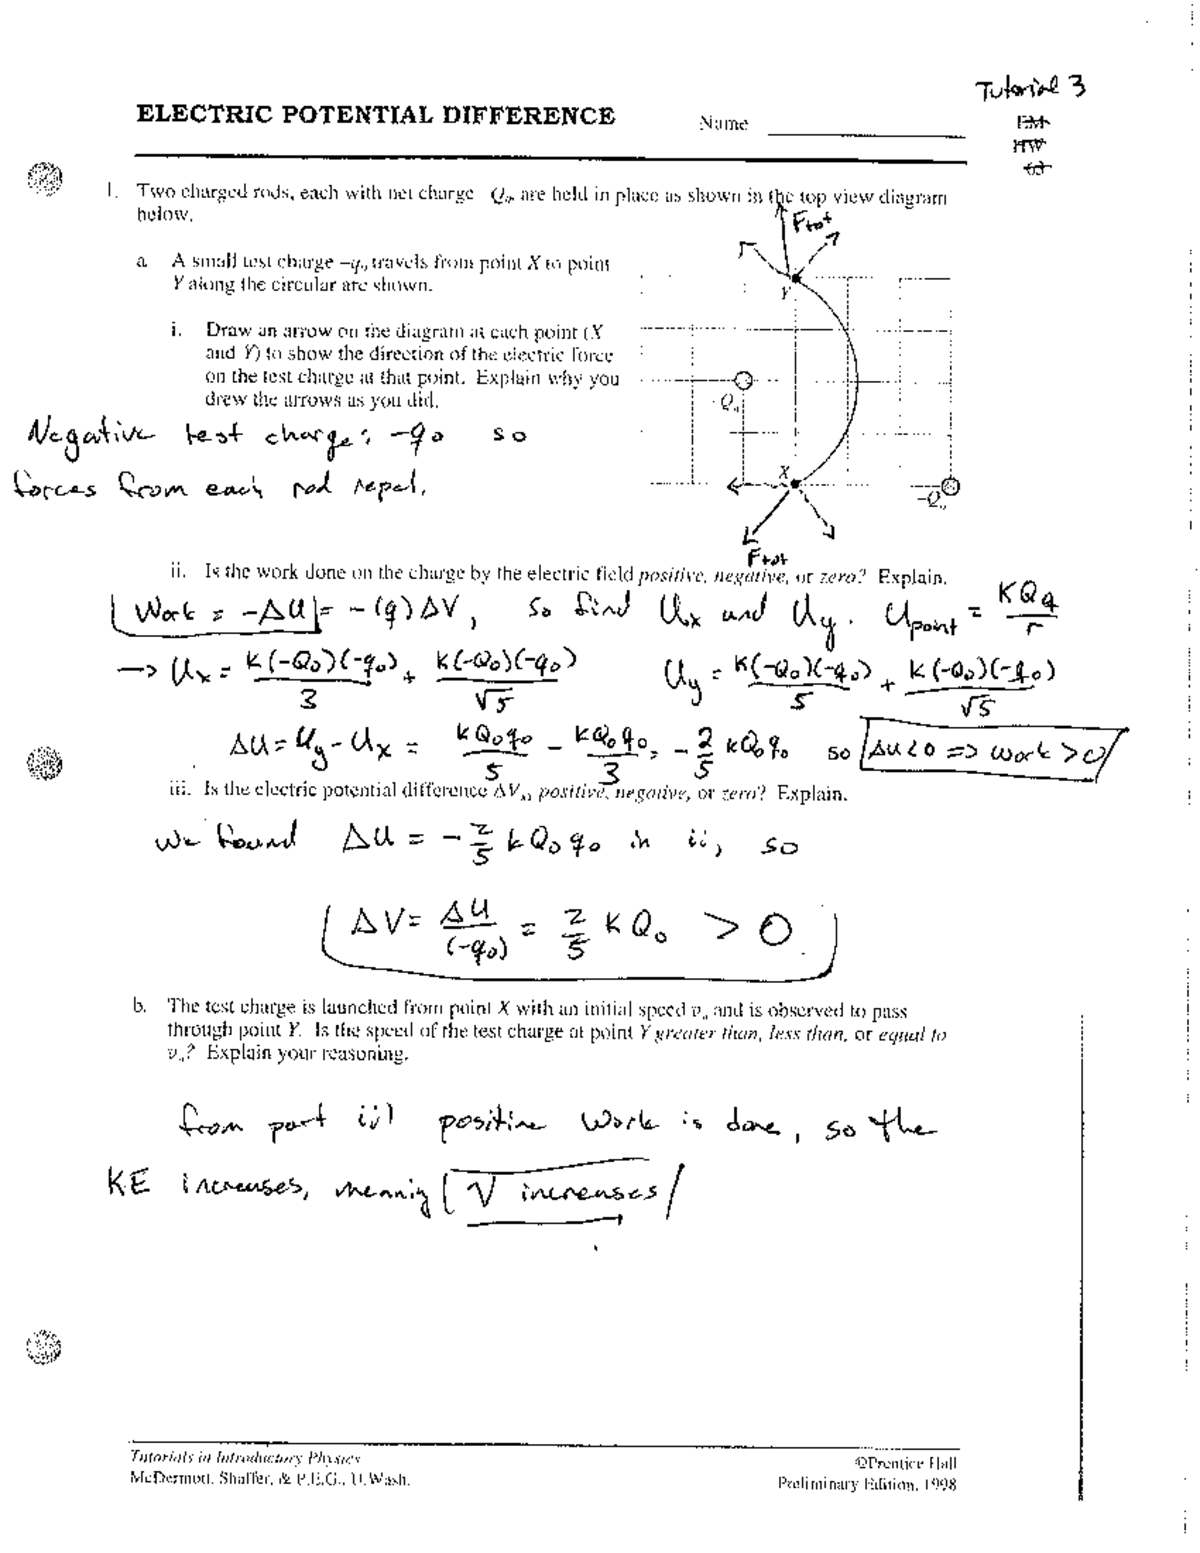 Tutorial 3
ELECTRIC POTENTIAL DIFFERENCE
Name
EM
HW
63
1. Two charged rods, each with net charge -Qo, are held in place as shown in the top view diagram
below.
a. A small test charge –qo travels from point X to point
Y along the circular arc shown.
i. Draw an arrow on the diagram at each point (X
and Y) to show the direction of the electric force
on the test charge at that point. Explain why you
drew the arrows as you did.
Ftot
Y
-Qo
X
-Qo
Ftot
Negative test charge: -qo so
forces from each rod repel.
ii. Is the work done on the charge by the electric field positive, negative, or zero? Explain.
Work = -ΔU = -(q)ΔV, so find Ux and Uy. Upoint = KQq/r
→ Ux = K(-Qo)(-qo)/3 + K(-Qo)(-qo)/√5 Uy = K(-Qo)(-qo)/5 + K(-Qo)(-qo)/√5
ΔU = Uy - Ux = KQoqo/5 - KQoqo/3 = -2/5 KQoqo so ΔU<0 => work >0
iii. Is the electric potential difference ΔVxy positive, negative, or zero? Explain.
we found ΔU = -2/5 kQoqo in ii, so
ΔV = ΔU/(-qo) = 2/5 KQo > 0
b. The test charge is launched from point X with an initial speed vo and is observed to pass
through point Y. Is the speed of the test charge at point Y greater than, less than, or equal to
vo? Explain your reasoning.
from part ii) positive work is done, so the
KE increases, meaning V increases
Tutorials in Introductory Physics
McDermott, Shaffer, & P.E.G., U.Wash.
©Prentice Hall
Preliminary Edition, 1998